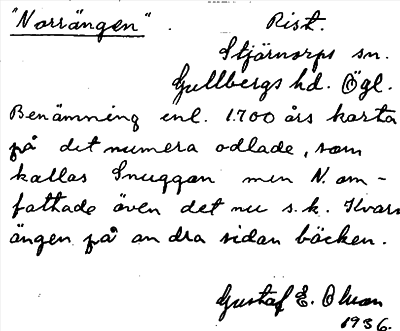 "Norrängen". Rist.
Stjärnorps sn.
Gullbergs hd. Ögl.
Benämning enl. 1700 års karta
på det numera odlade, som
kallas Snuggan men N. om-
fattade även det nu s.k. Kvarn
ängen på andra sidan bäcken.
Gustaf E. Olson
1936.